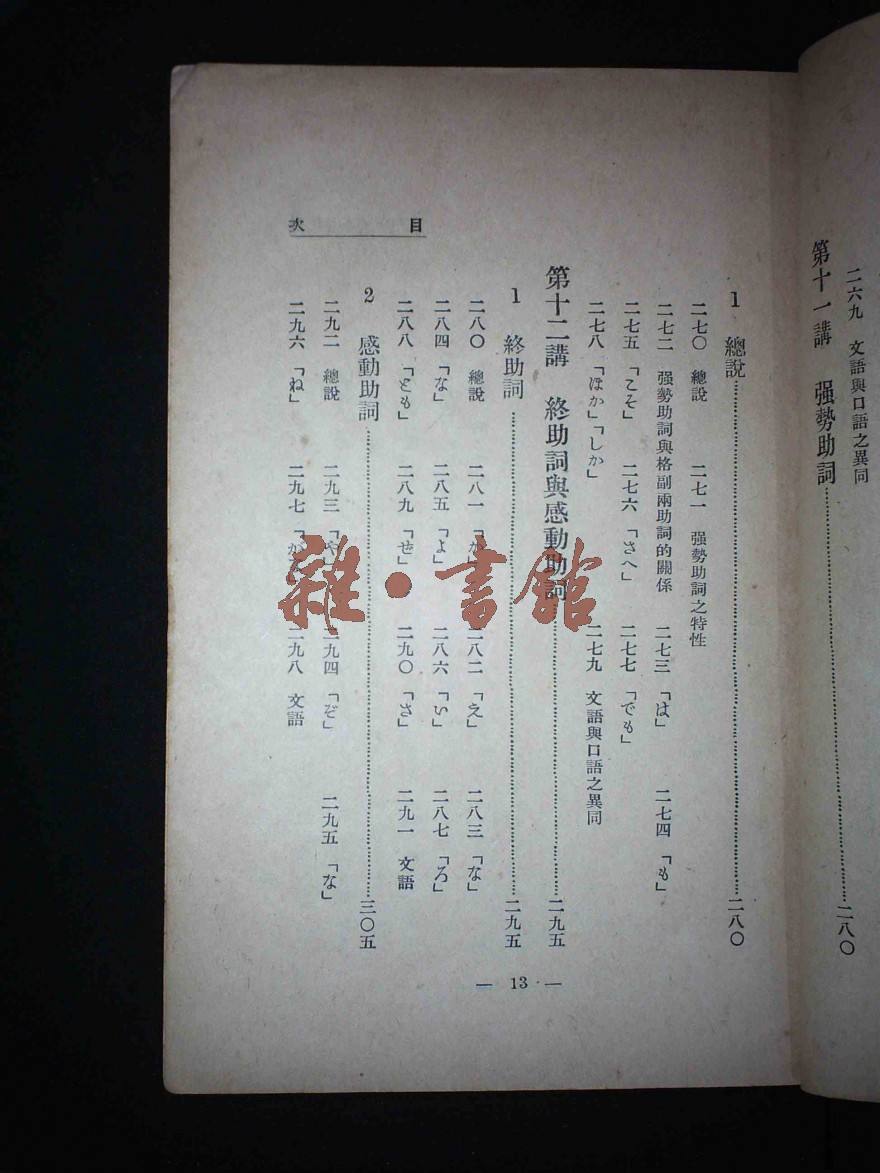 二六九　文語與口語之異同
第十一講　强勢助詞……二八〇
目次
1　總說……二八〇
二七〇　總說　二七一　强勢助詞之特性
二七二　强勢助詞與格副兩助詞的關係　二七三「は」　二七四「も」
二七五「こそ」　二七六「さへ」　二七七「でも」
二七八「ほか」「しか」　二七九　文語與口語之異同
第十二講　終助詞與感動助詞……二九五
1　終助詞……二九五
二八〇　總說　二八一「か」　二八二「え」　二八三「な」
二八四「な」　二八五「よ」　二八六「い」　二八七「ろ」
二八八「とも」　二八九「ぜ」　二九〇「さ」　二九一　文語
2　感動助詞……三〇五
二九二　總說　二九三「や」　二九四「ぞ」　二九五「な」
二九六「ね」　二九七　二九八　文語
— 13 —
雜·書館